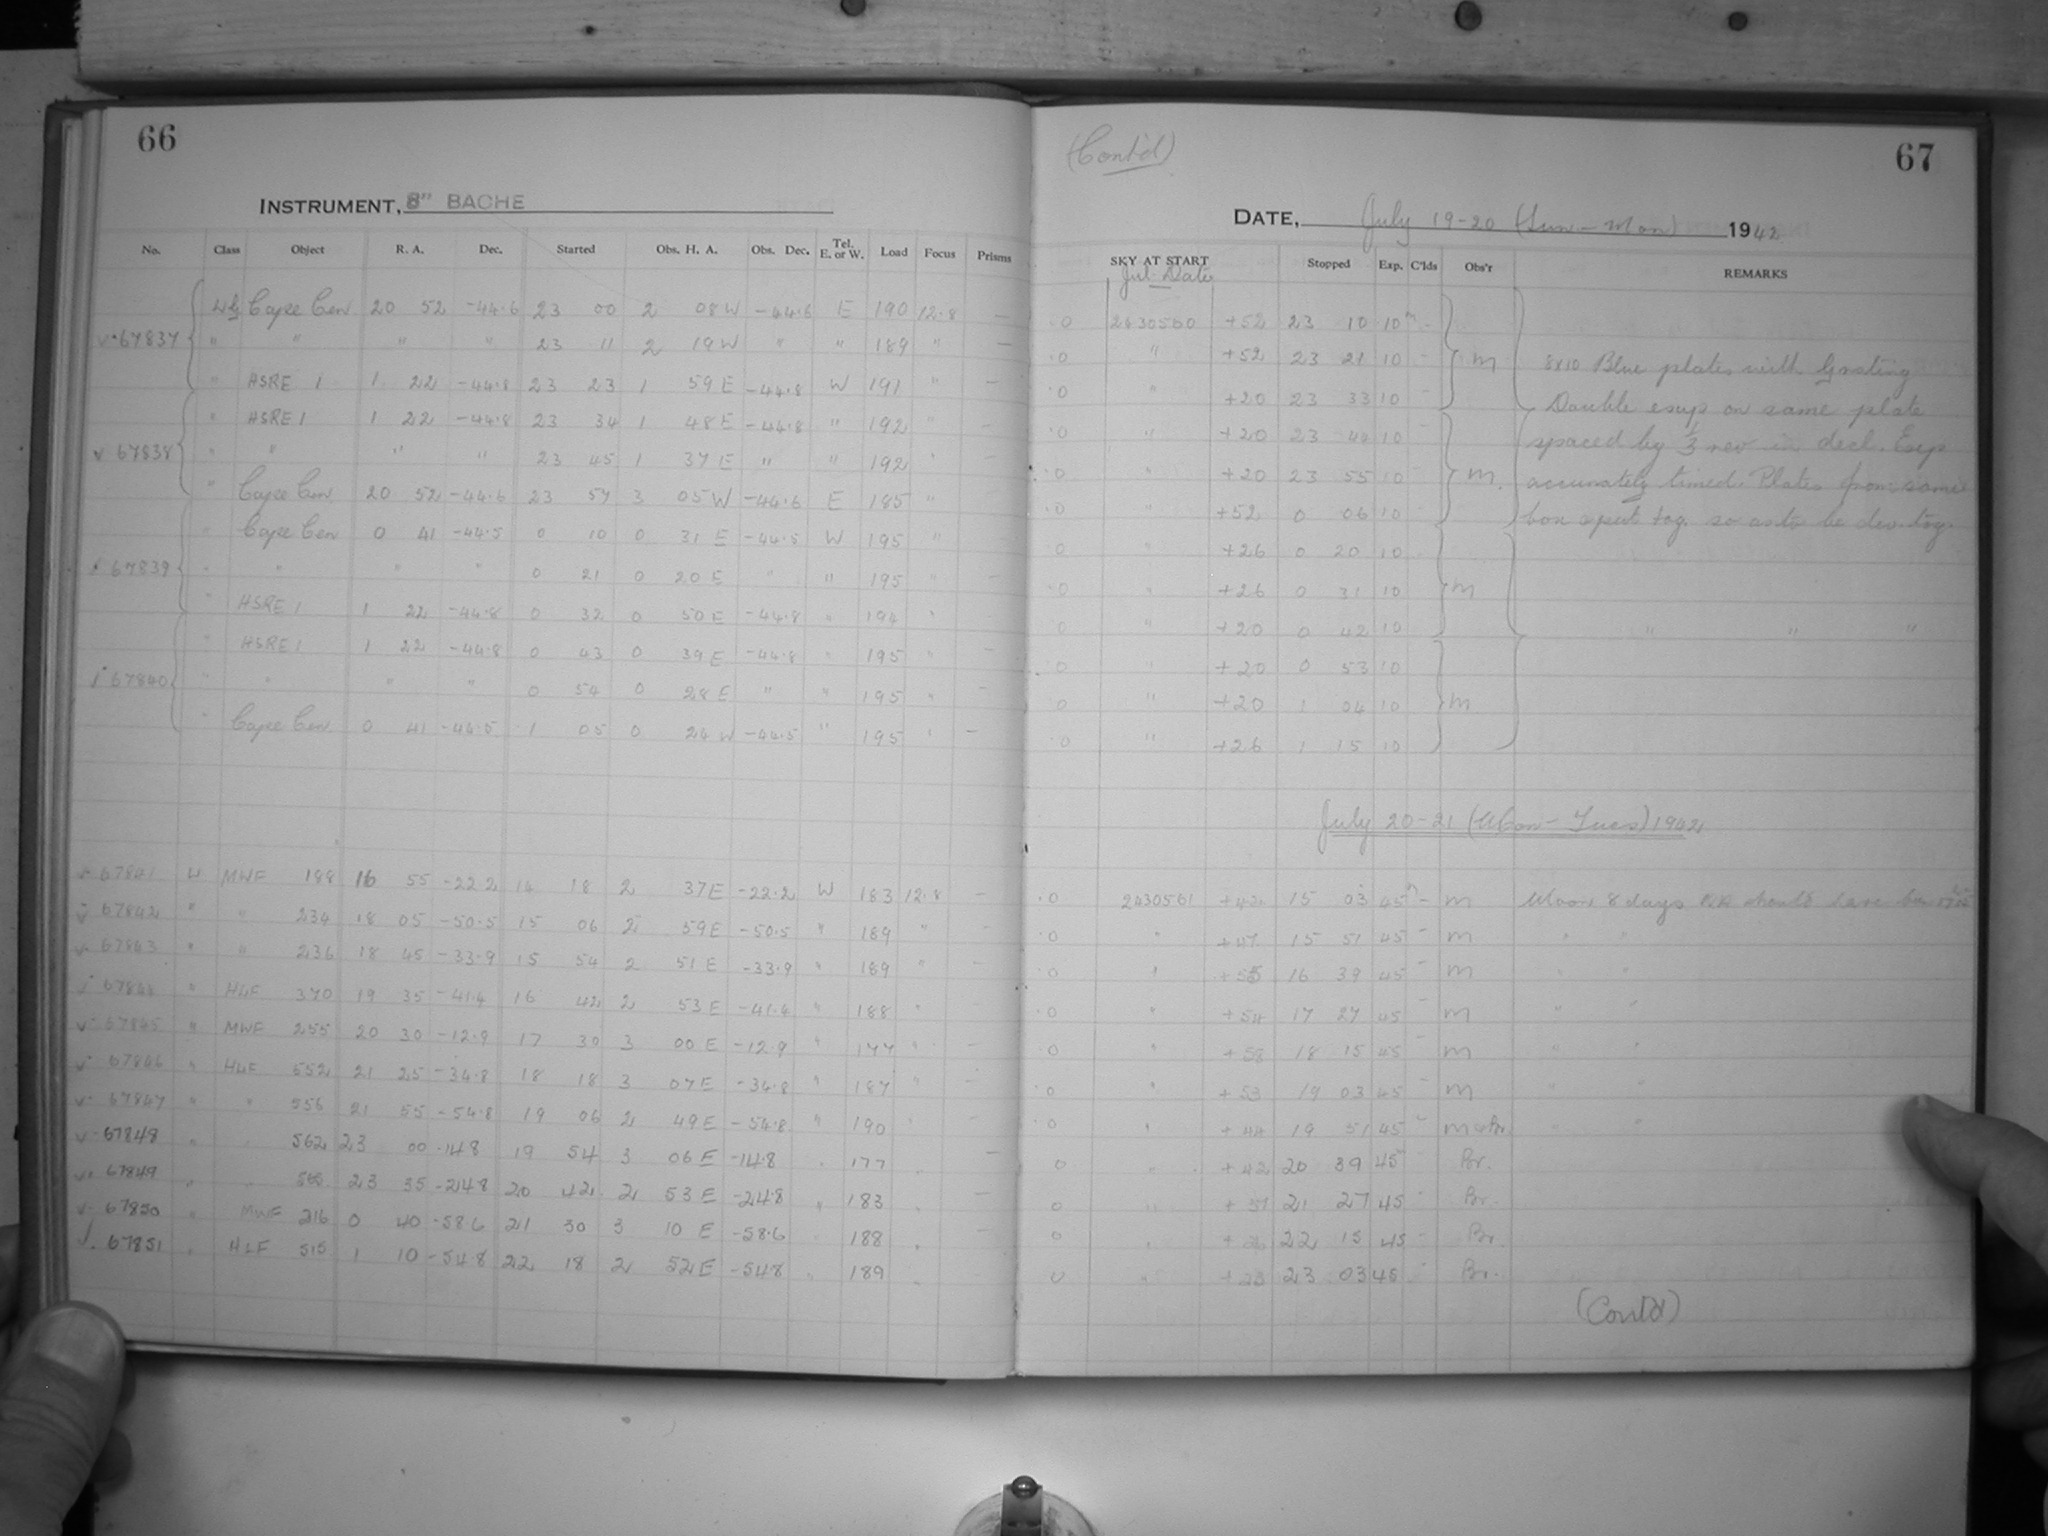 66
INSTRUMENT, 8" BACHE
No. Class Object R. A. Dec. Started Obs. H. A. Obs. Dec. Tel. E. or W. Load Focus Prisms
Cape Cen 20 52 -44.6 23 00 2 08 W -44.6 E 190 12.8 —
67837 " " " " 23 11 2 19 W " " 189 " —
" HSRE 1 1 22 -44.8 23 23 1 59 E -44.8 W 191 " —
" HSRE 1 1 22 -44.8 23 34 1 48 E -44.8 " 192 "
67838 " " " " 23 45 1 37 E " " 192 "
" Cape Cen 20 52 -44.6 23 57 3 05 W -44.6 E 185 "
" Cape Cen 0 41 -44.5 0 10 0 31 E -44.5 W 195 "
67839 " " " " 0 21 0 20 E " " 195 " —
" HSRE 1 1 22 -44.8 0 32 0 50 E -44.8 " 194 " —
" HSRE 1 1 22 -44.8 0 43 0 39 E -44.8 " 195 " —
67840 " " " " 0 54 0 28 E " " 195 " —
" Cape Cen 0 41 -44.5 1 05 0 24 W -44.5 " 195 " —
67841 W MWF 188 16 55 -22.2 14 18 2 37 E -22.2 W 183 12.8 —
67842 " " 234 18 05 -50.5 15 06 2 59 E -50.5 " 189 " —
67843 " " 236 18 45 -33.9 15 54 2 51 E -33.9 " 189 " —
67844 " HLF 370 19 35 -41.4 16 42 2 53 E -41.4 " 188 " —
67845 " MWF 255 20 30 -12.9 17 30 3 00 E -12.9 " 177 " —
67846 " HLF 552 21 25 -34.8 18 18 3 07 E -34.8 " 187 " —
67847 " " 556 21 55 -54.8 19 06 2 49 E -54.8 " 190 " —
67848 " " 562 23 00 -14.8 19 54 3 06 E -14.8 " 177 " —
67849 " " 23 35 -24.8 20 42 2 53 E -24.8 " 183 " —
67850 " MWF 216 0 40 -58.6 21 30 3 10 E -58.6 188 " —
67851 " HLF 515 1 10 -54.8 22 18 2 52 E -54.8 " 189 "
(Cont'd)
67
DATE, July 19-20 (Sun-Mon) 1942
SKY AT START Stopped Exp. C'lds Obs'r REMARKS
Jul. Date
0 2430560 +52 23 10 10m -
0 " +52 23 21 10 - m 8x10 Blue plates with Grating
0 " +20 23 33 10 - Double exup on same plate
0 " +20 23 44 10 - spaced by 1/3 rev in decl. Exps
0 " +20 23 55 10 - m. accurately timed. Plates from same
0 " +52 0 06 10 - box spect tog. so as to be dev. tog.
0 " +26 0 20 10
0 " +26 0 31 10 m
0 " +20 0 42 10 " " "
0 " +20 0 53 10
0 " +20 1 04 10 m
0 " +26 1 15 10
July 20-21 (Mon-Tues) 1942
0 2430561 15 03 45m - m Moon 8 days RA should have been
0 " +47 15 51 45 - m " "
0 " +55 16 39 45 - m " "
0 " +54 17 27 45 - m " "
0 " +58 18 15 45 - m " "
0 " +53 19 03 45 - m " "
0 " +44 19 51 45 - " "
0 " +42 20 39 45 Br.
0 " +51 21 27 45 - Br.
0 " 22 15 45 - Br.
0 " 23 03 45 - Br.
(Cont'd)